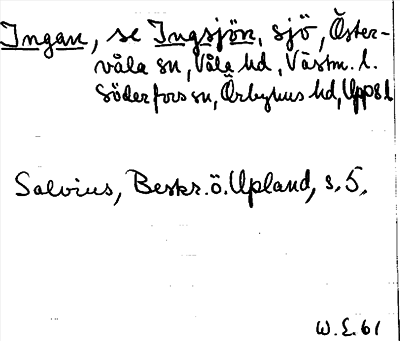 Ingan, se Ingsjön, sjö, Öster-
våla sn, Våla hd, Västm. l.
Söderfors sn, Örbyhus hd, Upps l
Salvius, Beskr. ö. Upland, s. 5.
W.E. 61